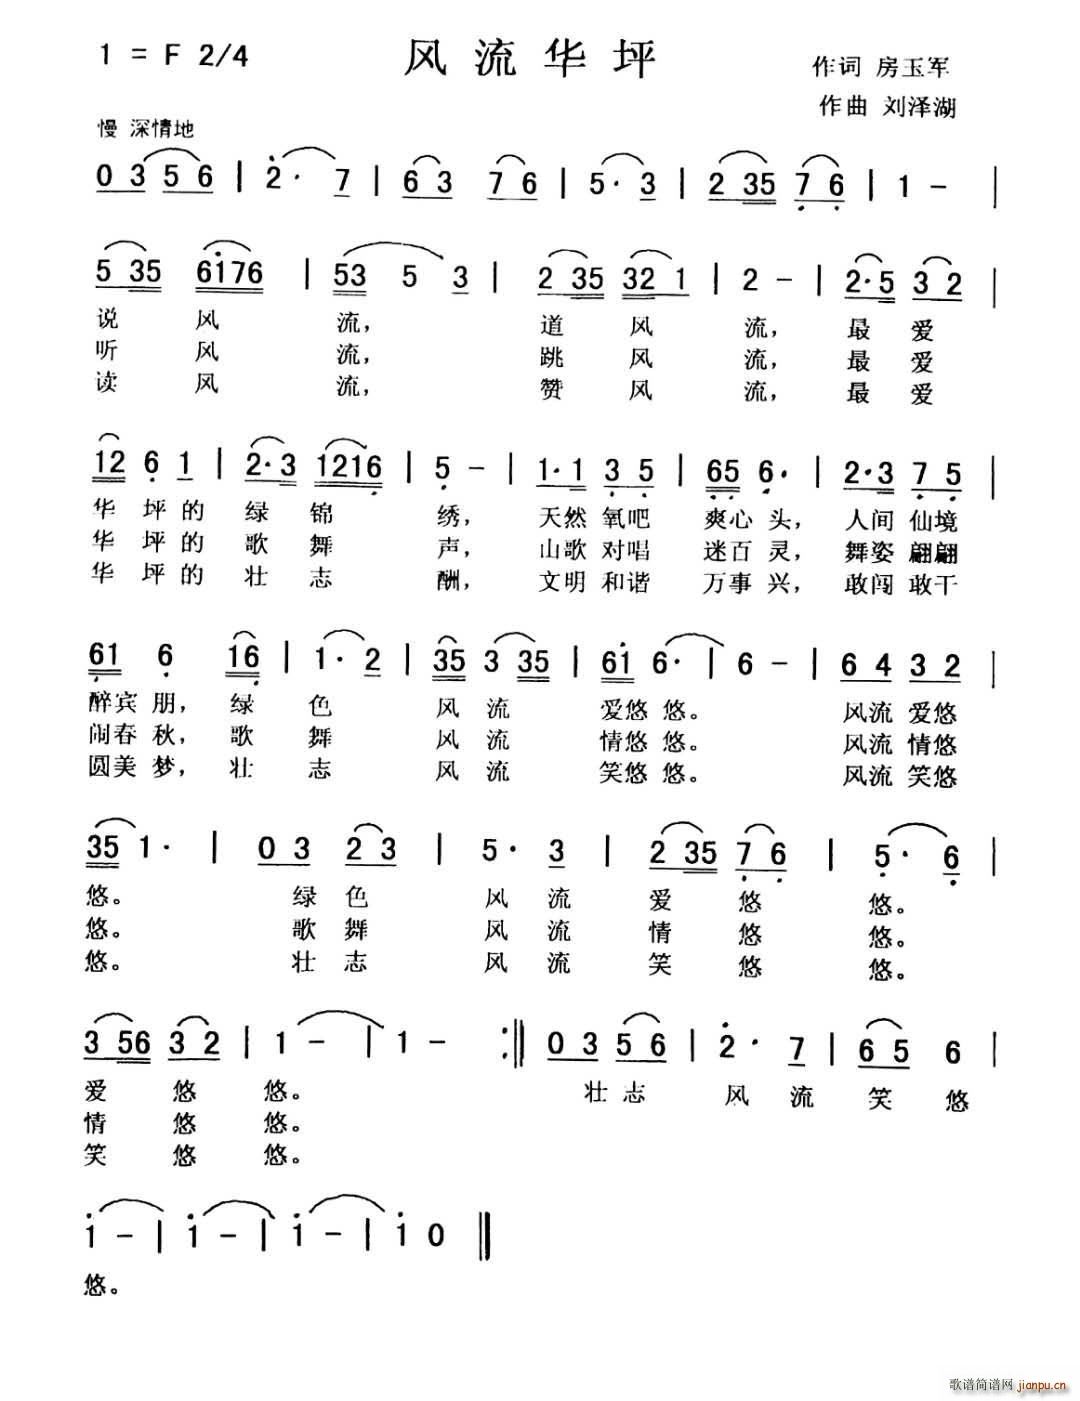 1 = F 2/4 风 流 华 坪 作词 房玉军
作曲 刘泽湖
慢 深情地
0 3 5 6 | 2· 7 | 6 3 7 6 | 5· 3 | 2 35 7 6 | 1 - |
5 35 6176 | 53 5 3 | 2 35 32 1 | 2 - | 2·5 3 2 |
说 风 流, 道 风 流, 最 爱
听 风 流, 跳 风 流, 最 爱
读 风 流, 赞 风 流, 最 爱
12 6 1 | 2·3 1216 | 5 - | 1·1 3 5 | 65 6· | 2·3 7 5 |
华 坪 的 绿 锦 绣, 天然 氧吧 爽心 头, 人间 仙境
华 坪 的 歌 舞 声, 山歌 对唱 迷百 灵, 舞姿 翩翩
华 坪 的 壮 志 酬, 文明 和谐 万事 兴, 敢闯 敢干
61 6 16 | 1· 2 | 35 3 35 | 61 6· | 6 - | 6 4 3 2 |
醉宾 朋, 绿 色 风 流 爱悠 悠。 风流 爱悠
闹春 秋, 歌 舞 风 流 情悠 悠。 风流 情悠
圆美 梦, 壮 志 风 流 笑悠 悠。 风流 笑悠
35 1· | 0 3 2 3 | 5· 3 | 2 35 7 6 | 5· 6 |
悠。 绿 色 风 流 爱 悠 悠。
悠。 歌 舞 风 流 情 悠 悠。
悠。 壮 志 风 流 笑 悠 悠。
3 56 3 2 | 1 - | 1 - :|| 0 3 5 6 | 2· 7 | 6 5 6 |
爱 悠 悠。 壮 志 风 流 笑 悠
情 悠 悠。
笑 悠 悠。
1 - | 1 - | 1 - | 1 0 ||
悠。
歌谱简谱网 jianpu.cn